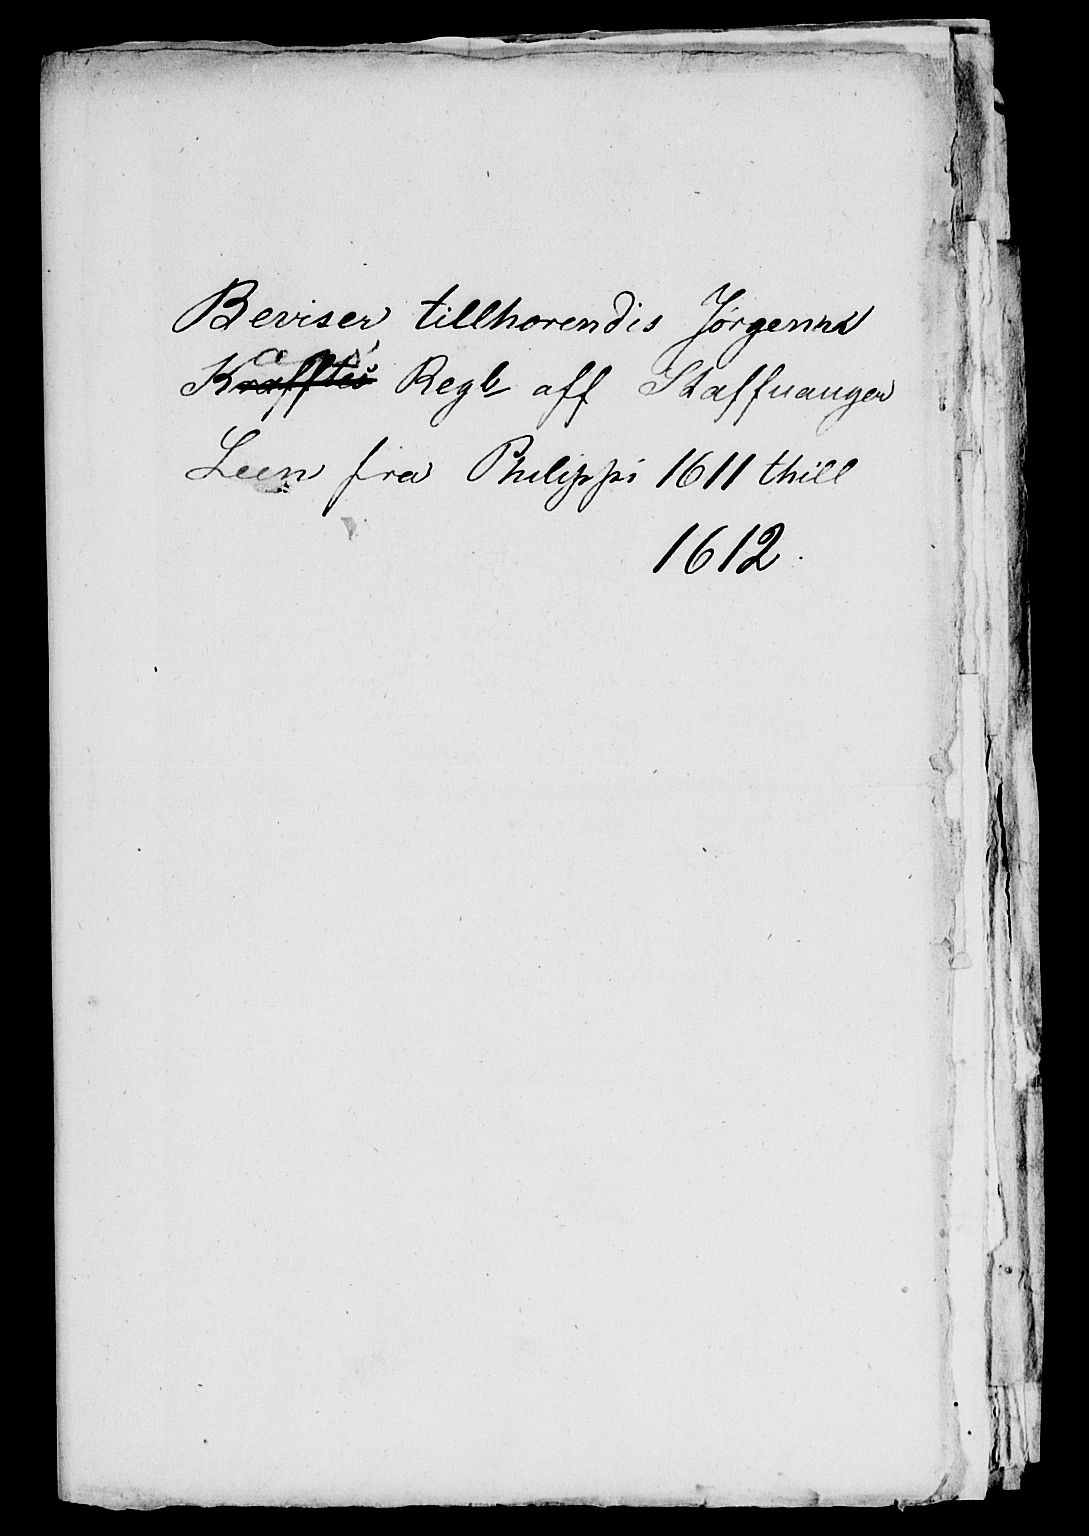 Beviser tillhorendis Jørgenns
Krafftes Regb aff Staffuanger
Leen fra Philippi 1611 thill
1612.